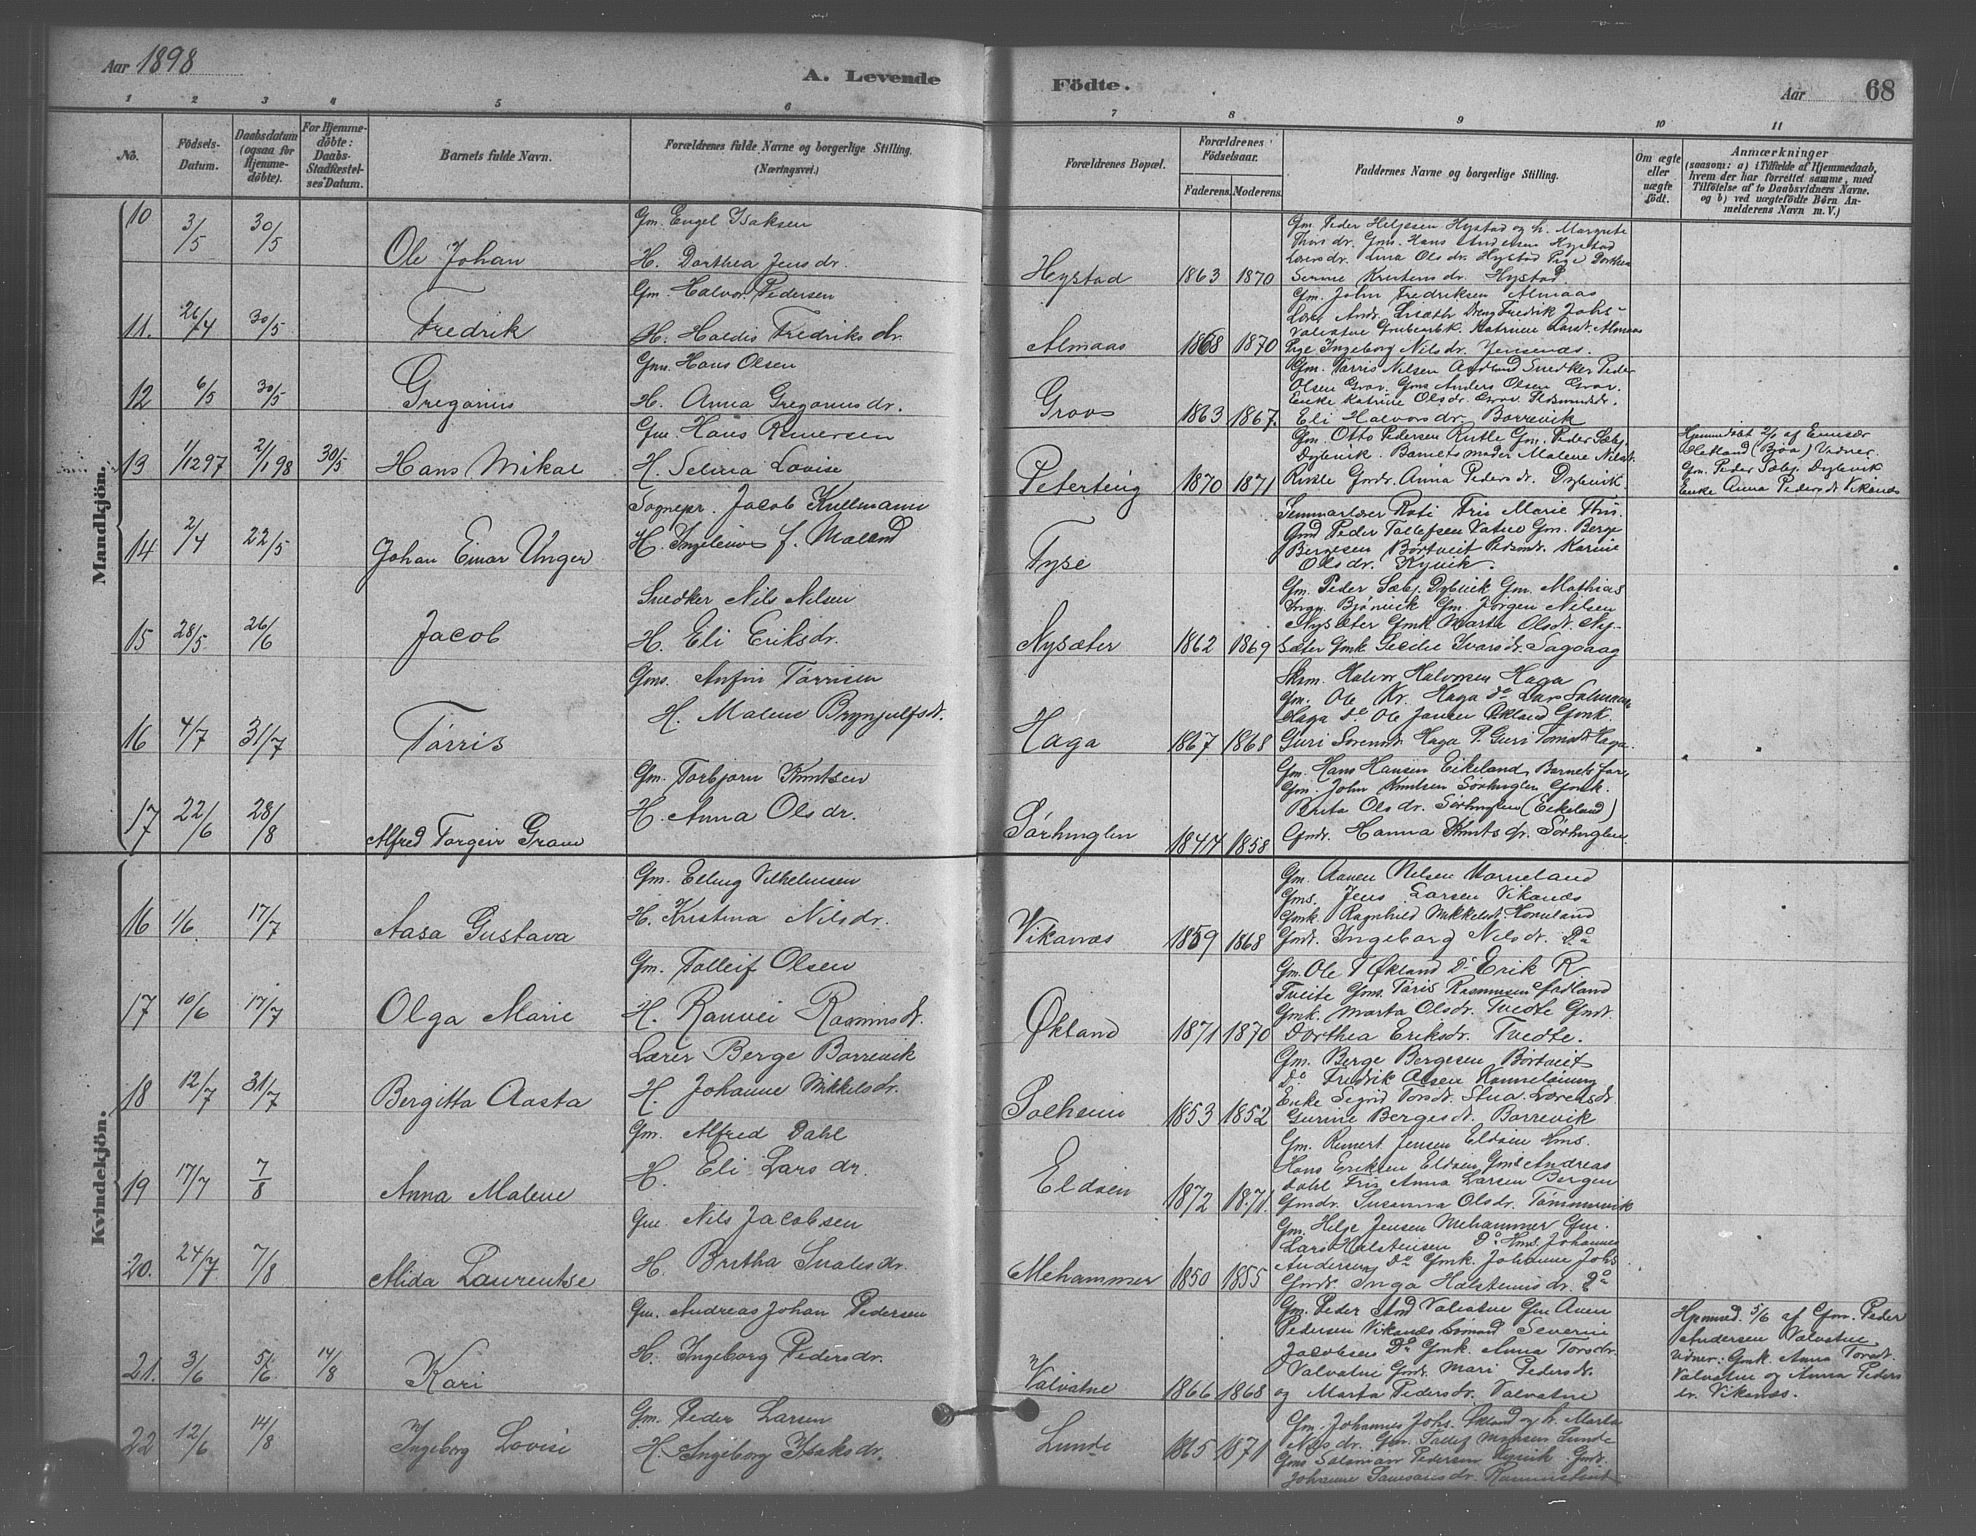 Aar 1898
A. Levende
Födte.
Aar
68
1 2 3 4 5 6 7 8 9 10 11
No.
Födsels-Datum.
Daabsdatum (ogsaa for Hjemme-döbte).
For Hjemme-döbte: Daabs-Stadfæstel-ses Datum.
Barnets fulde Navn.
Forældrenes fulde Navne og borgerlige Stilling. (Næringsvei.)
Forældrenes Bopæl.
Forældrenes Födselsaar.
Faderens. Moderens.
Faddernes Navne og borgerlige Stilling.
Om ægte eller uægte födt.
Anmærkninger
(saasom: a) i Tilfælde af Hjemmedaab,
hvem der har forrettet samme, med
Tilföielse af to Daabsvidners Navne,
og b) ved uægtefödte Börn An-
melderens Navn m. V.)
Mandkjön.
10 3/5 30/5 Ole Johan
Gm. Engel Isaksen
H. Dorthea Jensdr.
Hystad 1863 1870
Gm. Peder Helgesen Hystad og h. Margrete
Thisdr. Gms. Hans Andersen Hystad
Lina Olsdr. Hystad Pige Dorthea
Serine Kristensdr. Hystad
11. 26/4 30/5 Fredrik
Gm. Halvor Pedersen
H. Haldis Fredriksdr.
Almaas 1868 1870
Gm. John Fredriksen Almaas
Fredrik Johs-
Valvatne Katrine Larsdr. Almaas
Pige Ingeborg Nilsdr. Jensenæs.
12 6/5 30/5 Gregorius
Gm. Hans Olsen
H. Anna Gregoriusdr.
Groos 1863 1867.
Gm. Torris Nilsen Snedker Peder
Olsen Grov. Gms Anders Olsen Grov.
Enke Katrine Olsdr. Grov.
Eli Halvorsdr. Borrevik
13 1/12 97 2/1 98 30/5 Hans Mikal
Gm. Hans Reinersen
H. Selina Lovise
Peterteig 1870 1871
Gm. Otto Pedersen Rutle Gm. Peder Sæbj.
Dybevik. Barnets moder Malene Nilsdr.
Rutle Gmdr. Anna Pedersdr. Dybevik.
Hjemmedøbt 2/1 af Emisær
Økland (Bjoa) Vidner:
Gm. Peder Sæbj. Dybevik
Enke Anna Pedersdr Vikanæs
14 2/4 22/5 Johan Einar Unger
Sognepr. Jacob Kullmann
H. Ingeleiv f. Maland
Tyse
Seminarlærer Roti Frk Marie This
Gmd Peder Tollefsen Vatne Gm. Berge
Bergesen Børtveit Karine
Olsdr. Kyvik.
15 28/5 26/6 Jacob
Snedker Nils Nilsen
H. Eli Eriksdr.
Nysæter 1862 1869
Gm. Peder Sæbj. Dybevik Gm. Mathias
Ingv. Bjørnevik Gm. Jørgen Nilsen
Nysæter Gmk Marta Olsdr. Ny-
sæter Gmk Cecilie Ivarsdr. Sagvaag
16 4/7 31/7 Tørris
Gms. Anfin Tørrisen
H. Malene Brynjulfsdr.
Haga 1867 1868
Skom. Halvor Halvorsen Haga
Gm. Ole Kr. Haga do Lars Salmonsen
Haga do Ole Jansen Økland Gmk.
Guri Sørensdr. Haga P. Guri Tomasdr. Haga.
17 22/6 28/8 Alfred Torgeir Grane
Gm. Torbjørn Knutsen
H. Anna Olsdr.
Sørhuglen 1844 1858
Gm. Hans Hansen Eikeland, Barnets far,
Gm. John Knutsen Sørhuglen Gmk.
Brita Olsdr. Sørhuglen (Eikeland)
Gmdr. Hanna Knutsdr. Sørhuglen.
Kvindekjön.
16 1/6 17/7 Aasa Gustava
Gm. Elling Vilhelmsen
H. Kristina Nilsdr.
Vikanæs 1859 1868
Gm. Aamen Nilsen Horneland
Gms. Jens Larsen Vikanæs
Gmk. Ragnhild Mikkelsdr. Horneland
Gmdr. Ingeborg Nilsdr. Do
17 10/6 17/7 Olga Marie
Gm. Tolleif Olsen
H. Ranvei Rasmusdr.
Økland 1871 1870
Gm. Ole T Økland Do Erik R
Tveite Gms. Tøris Rasmussen Fadland
Gmk. Marta Olsdr. Tvedte Gmdr.
Dorthea Eriksdr. Tvedte.
18 12/7 31/7 Bergitta Aasta
Lærer Berge Borrevik
H. Johanne Mikkelsdr.
Solheim 1853 1852
Gm. Berge Bergesen Børtveit
Do Fredrik Olsen Hanneløining
Enke Sigrid Torsdr. Stua. Lorensdr.
Gurine Bergesdr. Borrevik
19 17/7 7/8 Anna Malene
Gm. Alfred Dahl
H. Eli Larsdr.
Eldøen 1872 1871.
Gm. Reinert Jensen Eldøen Hms.
Hans Eriksen Eldøen Gms Andreas
Dahl Frk Anna Larsen Bergen
Gmdr. Susanna Olsdr. Tømmervik
20. 24/7 7/8 Alida Laurentse
Gm. Nils Jacobsen
H. Britha Sualesdr.
Mehammer 1850 1855
Gm. Helge Jensen Mehammer Gm.
Lars Halstensen Do Hms. Johannes
Andersen Do Gmk. Johanne Johs
Gmdr. Inga Halstensdr. Do
21. 3/6 5/6 14/8 Kari
Gm. Andreas Johan Pedersen
H. Ingeborg Pedersdr.
Valvatne 1866 1868
Gm. Peder And Valvatne Gm Amen
Pedersen Vikanæs Severin
Jacobsen Do Gmk. Anna Torsdr.
Valvatne Gmdr. Mari Pedersdr.
og Marta Pedersdr. Valvatne
Hjemmed. 5/6 af Gm. Peder
Andersen Valvatne.
Vidner: Gmk. Anna Torsdr.
Valvatne og Anna Peders
dr. Vikanæs.
22 12/6 14/8 Ingeborg Lovise
Gm. Peder Larsen
H. Ingeborg Isaksdr.
Lunde 1865 1871
Gm. Johannes Johs. Økland og h. Marta
Nilsdr. Gm. Tollef Monsen Lunde
Gms Salamon Pedersen Kyvik Gmdr.
Johanne